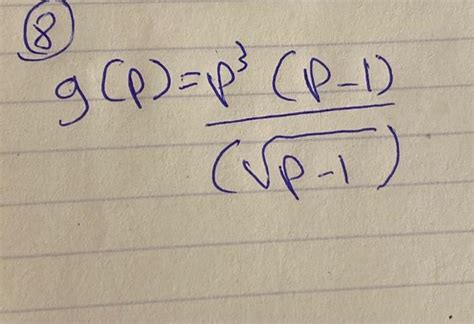 8
g(p)=p³ (p-1)
(√p-1)